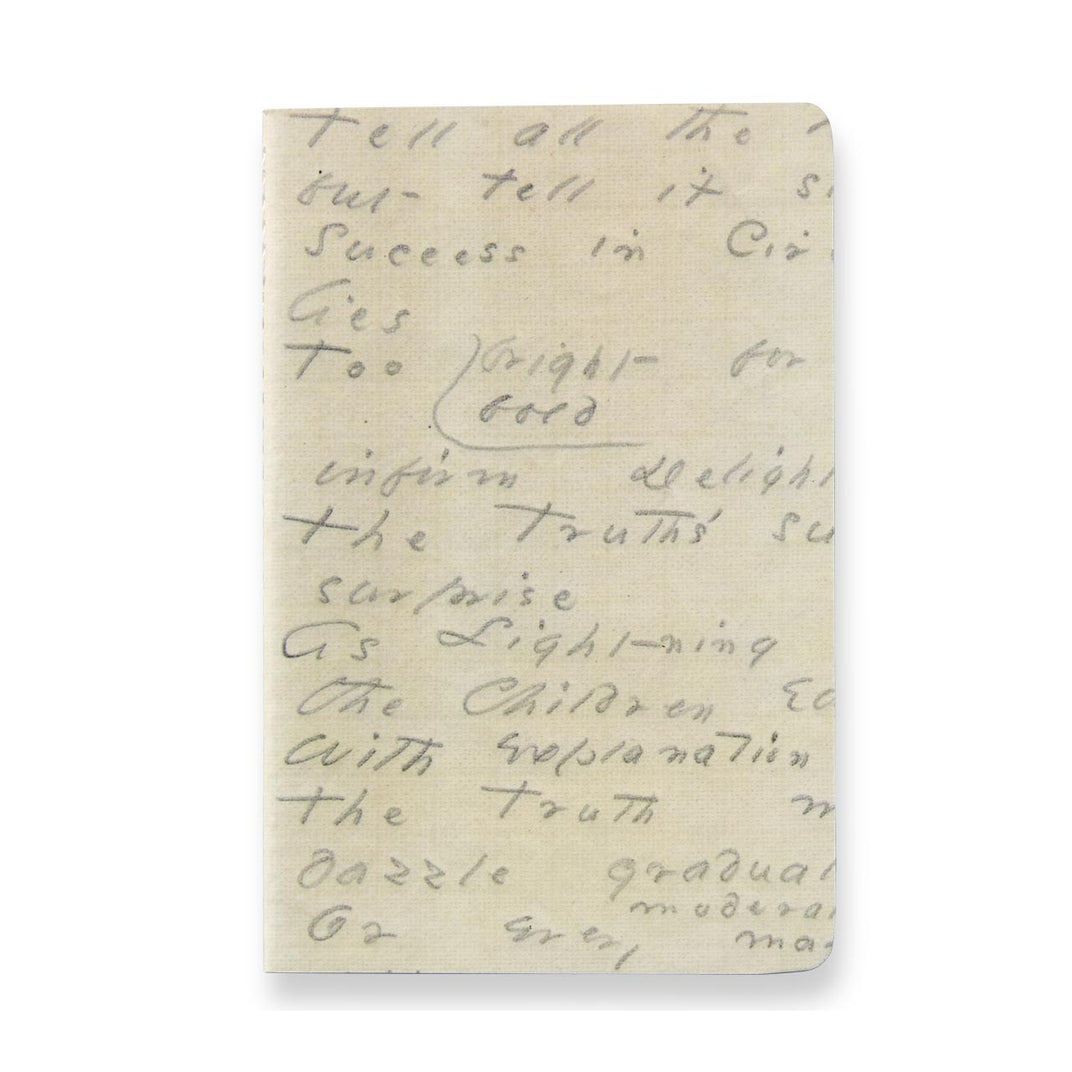 Tell all the T
but - tell it sl
Success in Cir
lies
Too bright - for
bold
infirm Delight
The Truth's su
surprise
As Lightning
The Children Ea
With explanation
The Truth m
dazzle gradual
moderat
Or every ma